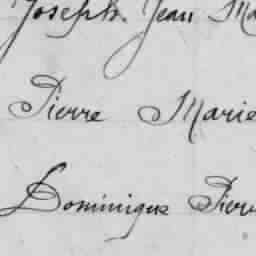 Joseph Jean Ma
Pierre Marie
Dominique Pierr